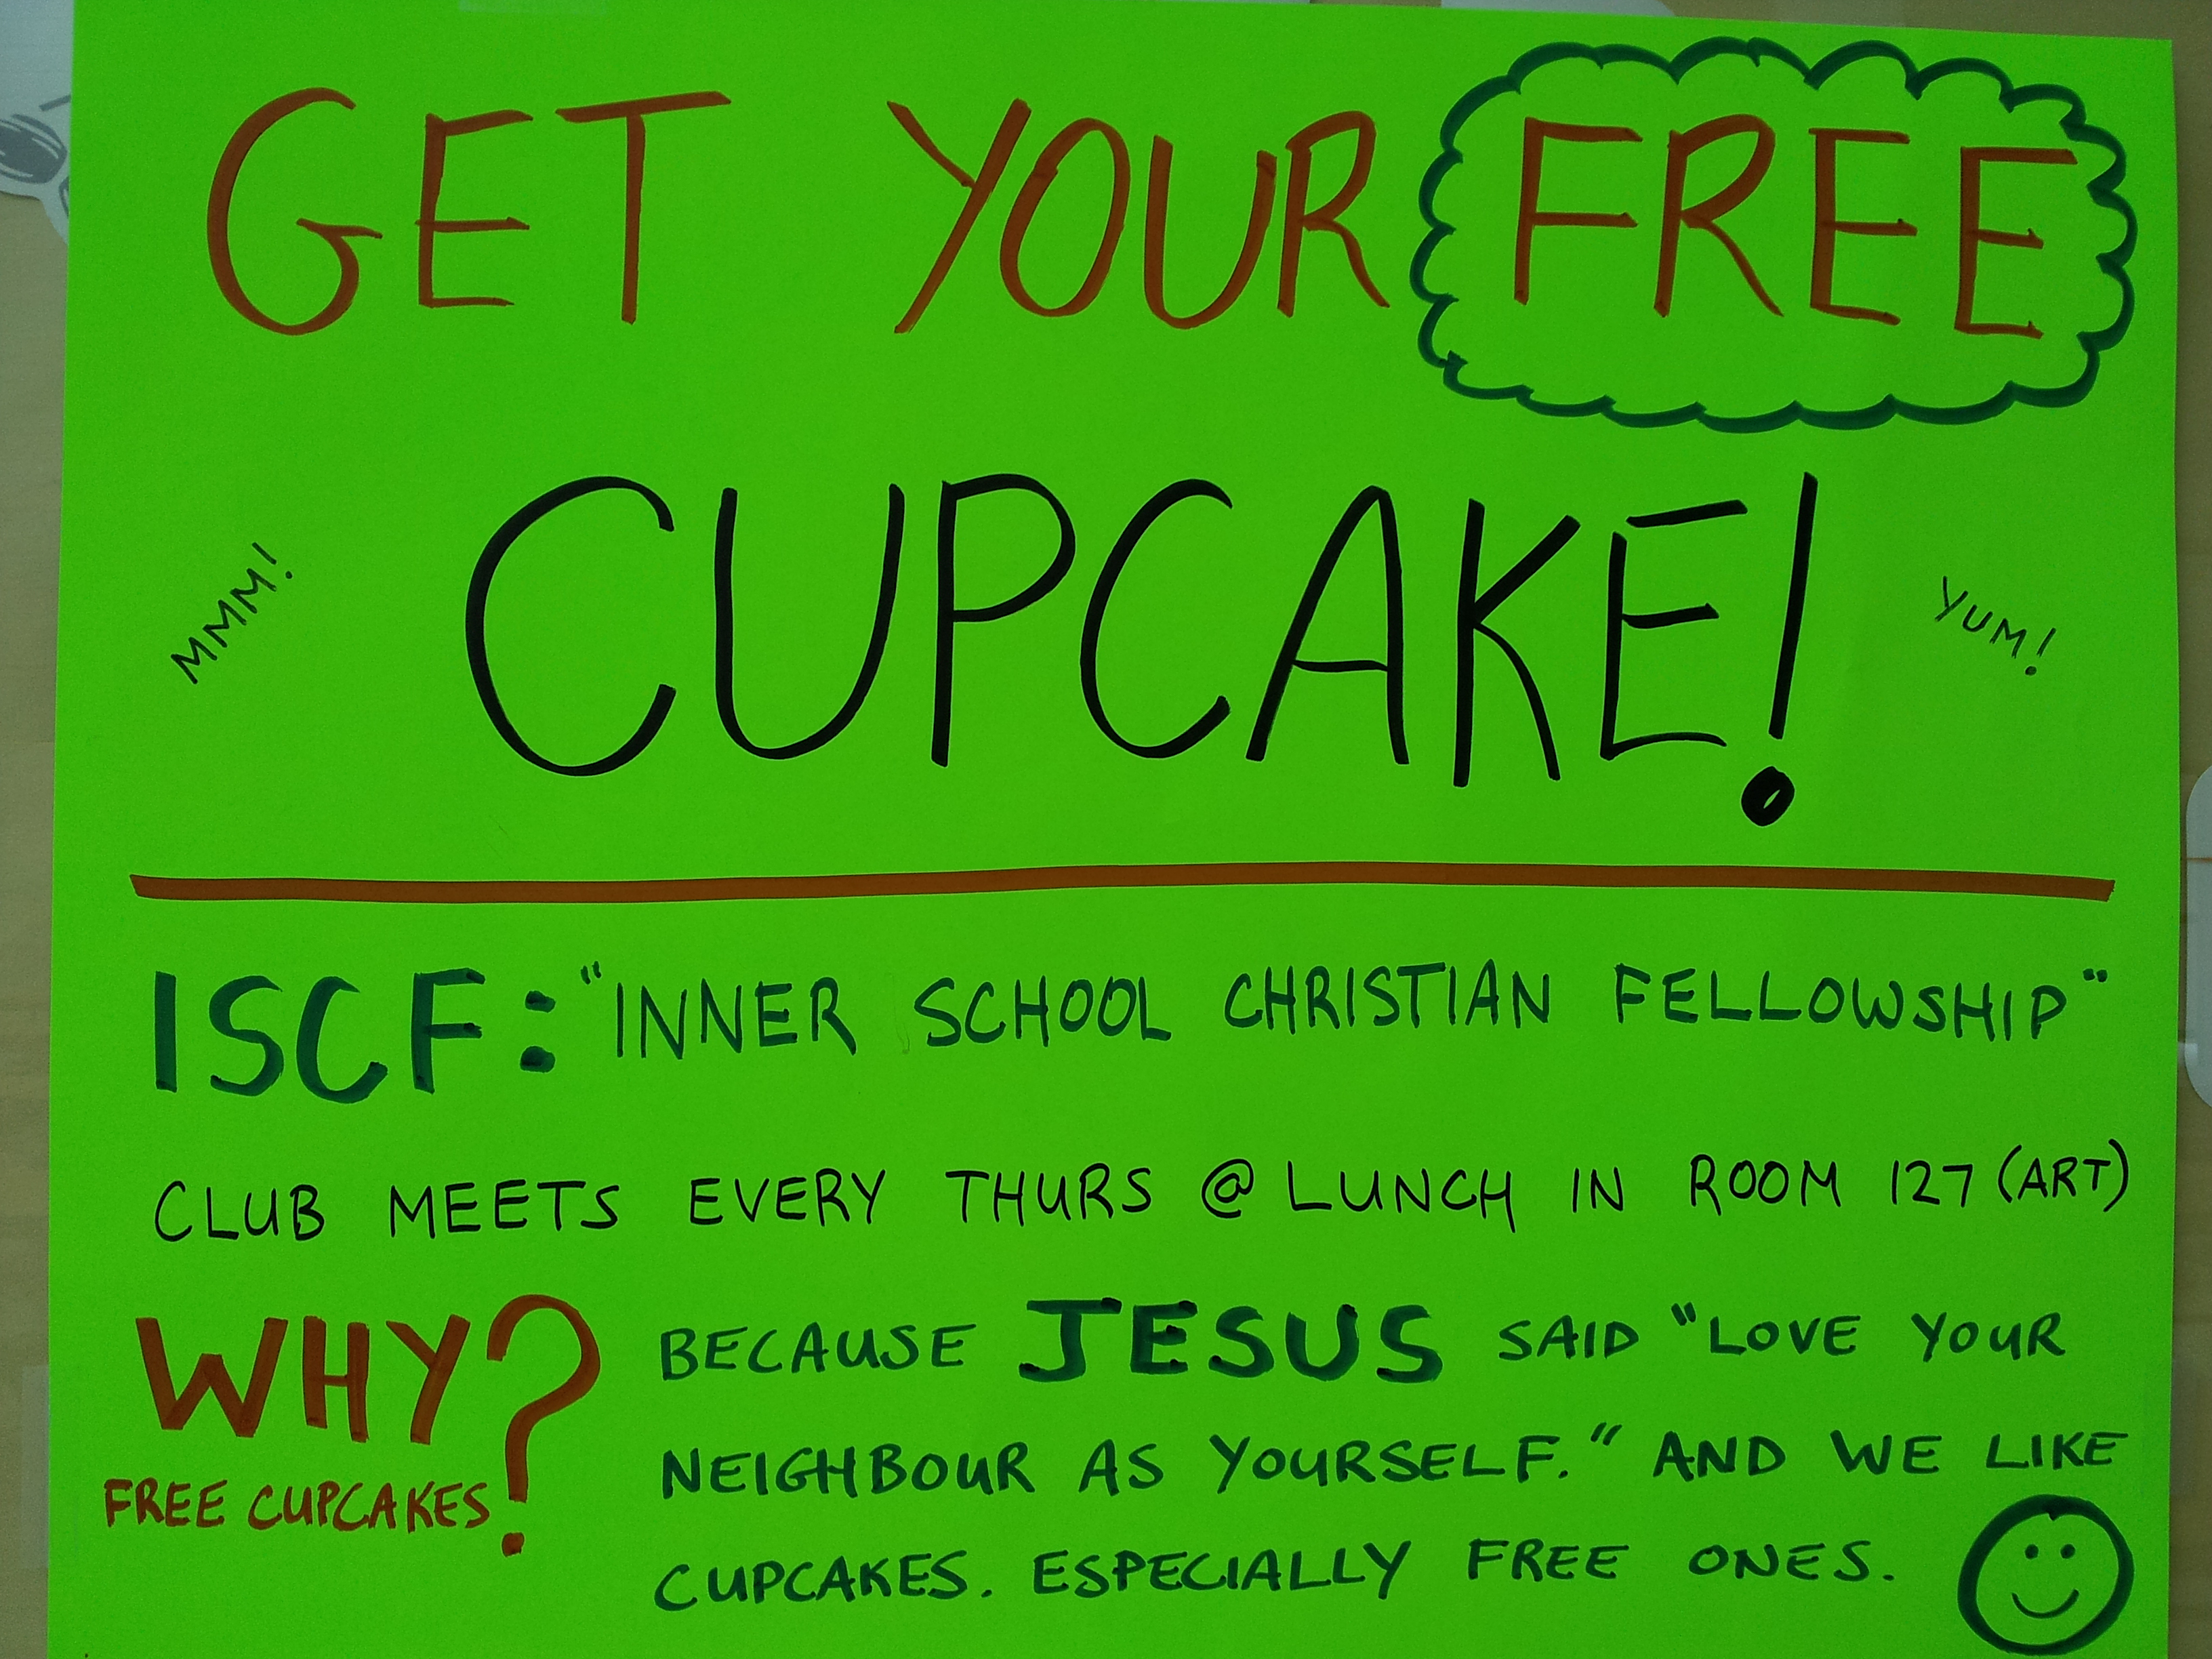 GET YOUR FREE
CUPCAKE!
MMM!
YUM!
ISCF: "INNER SCHOOL CHRISTIAN FELLOWSHIP"
CLUB MEETS EVERY THURS @ LUNCH IN ROOM 127 (ART)
WHY?
FREE CUPCAKES
BECAUSE JESUS SAID "LOVE YOUR
NEIGHBOUR AS YOURSELF." AND WE LIKE
CUPCAKES. ESPECIALLY FREE ONES.